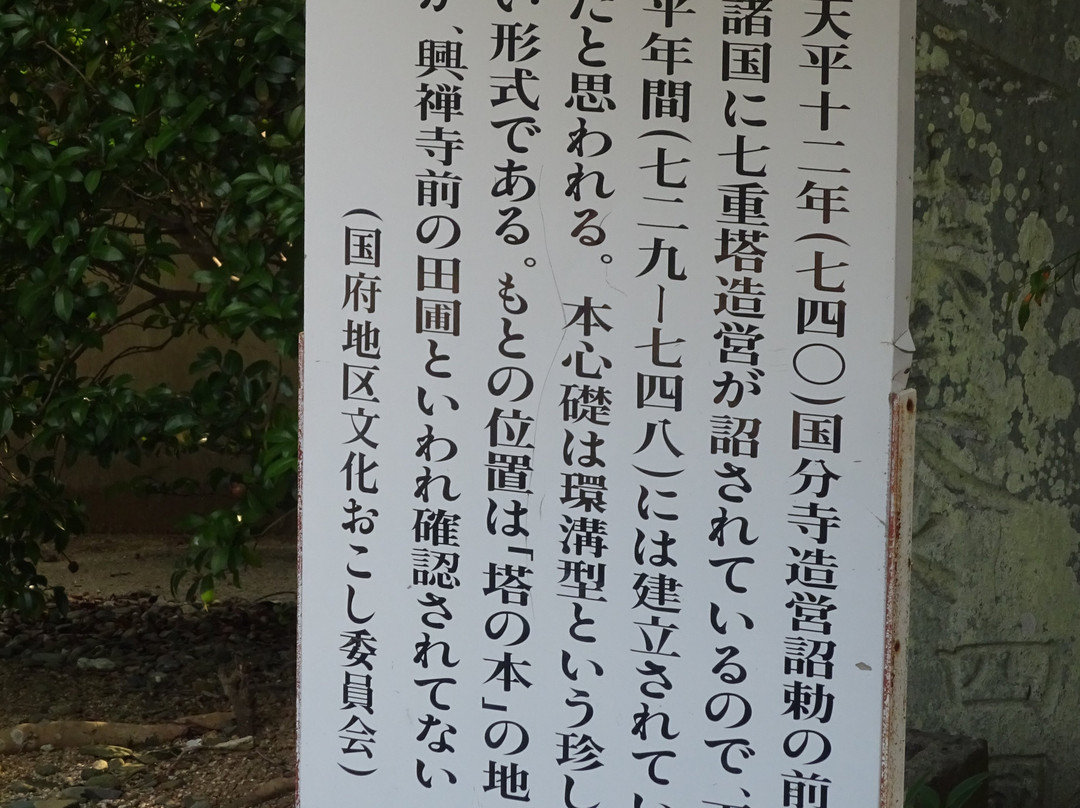 天平十二年(七四〇)国分寺造営詔勅の前
諸国に七重塔造営が詔されているので、
平年間(七二九ー七四八)には建立されてい
たと思われる。本心礎は環溝型という珍し
い形式である。もとの位置は「塔の本」の地
が、興禅寺前の田圃といわれ確認されてない
(国府地区文化おこし委員会)